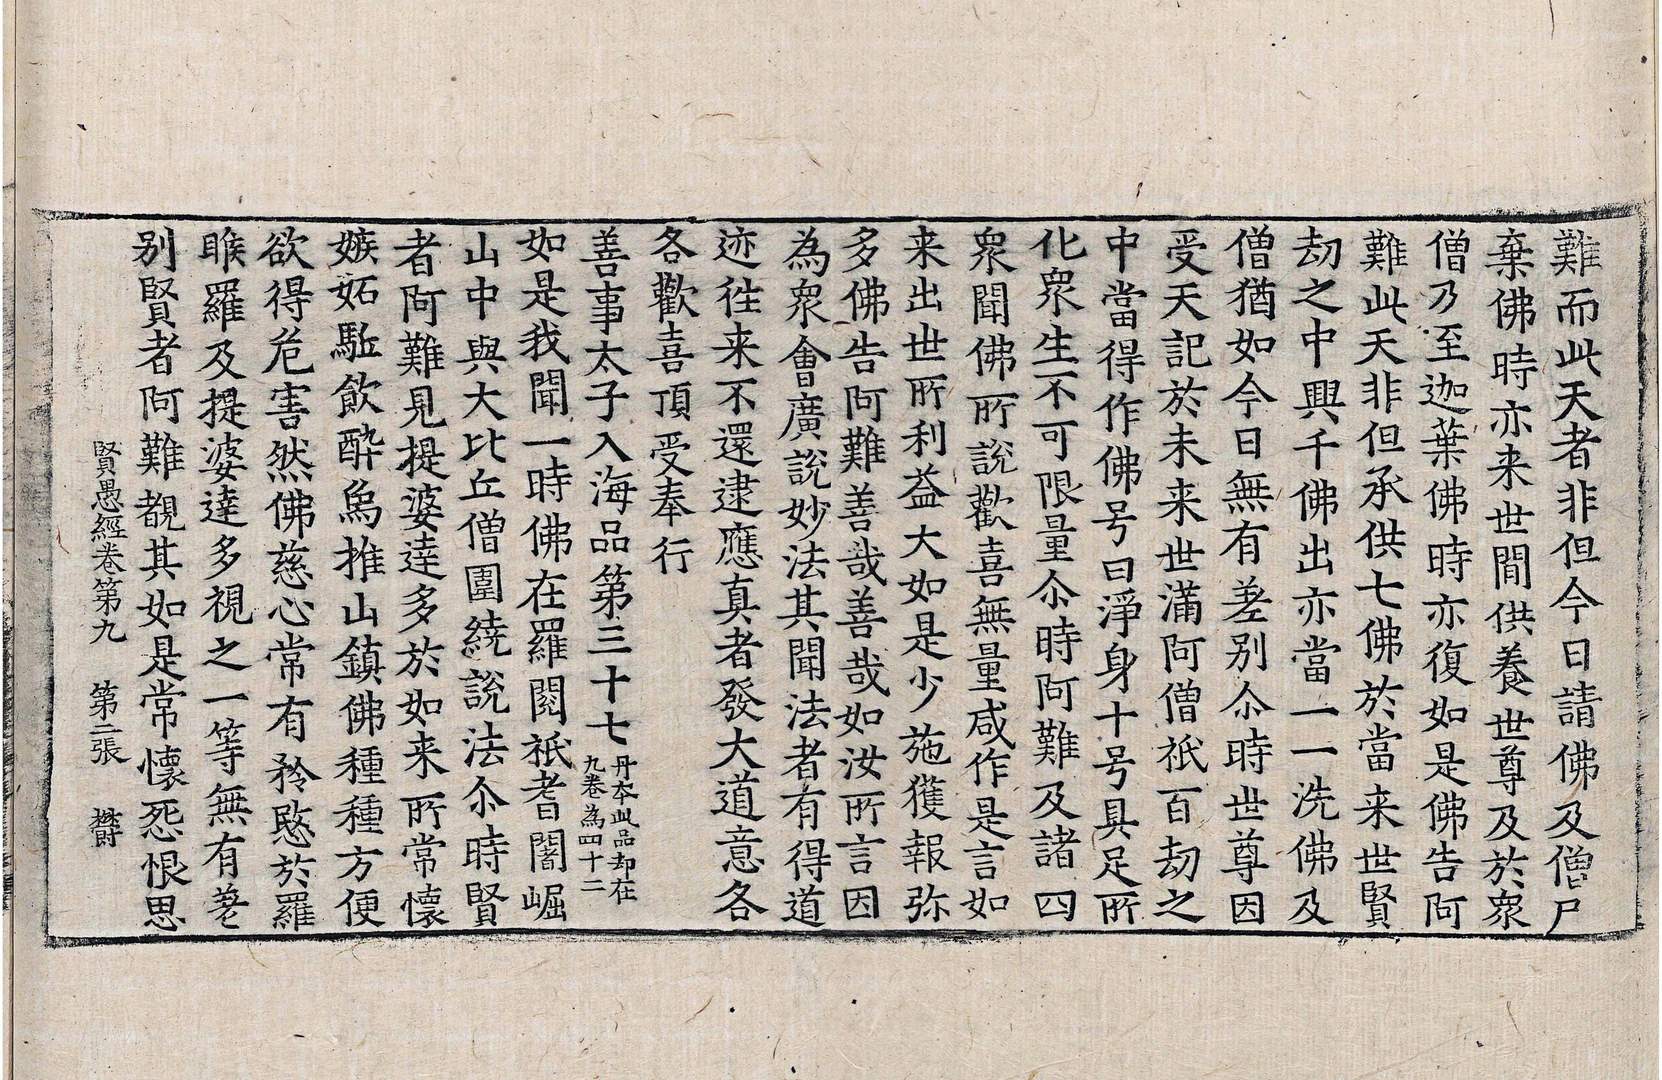 難而此天者非但今日請佛及僧尸
棄佛時亦来世間供養世尊及於衆
僧乃至迦葉佛時亦復如是佛告阿
難此天非但承供七佛於當来世賢
劫之中興千佛出亦當一一洗佛及
僧猶如今日無有差别尒時世尊因
受天記於未来世滿阿僧祇百劫之
中當得作佛号曰淨身十号具足所
化衆生不可限量尒時阿難及諸四
衆聞佛所說歡喜無量咸作是言如
来出世所利益大如是少施獲報弥
多佛告阿難善哉善哉如汝所言因
為衆會廣說妙法其聞法者有得道
迹往来不還逮應真者發大道意各
各歡喜頂受奉行
善事太子入海品第三十七 丹本此品却在九卷為四十二
如是我聞一時佛在羅閱祇耆闍崛
山中與大比丘僧圍繞說法尒時賢
者阿難見提婆達多於如来所常懷
嫉妬駈飲醉象推山鎮佛種種方便
欲得危害然佛慈心常有矜愍於羅
睺羅及提婆達多視之一等無有差
别賢者阿難覩其如是常懷怨恨思
賢愚經卷第九 第二張 欝